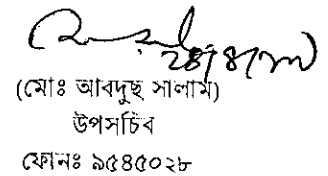 (মোঃ আবদুছ সালাম)
উপসচিব
ফোনঃ ৯৫৪৫০২৮